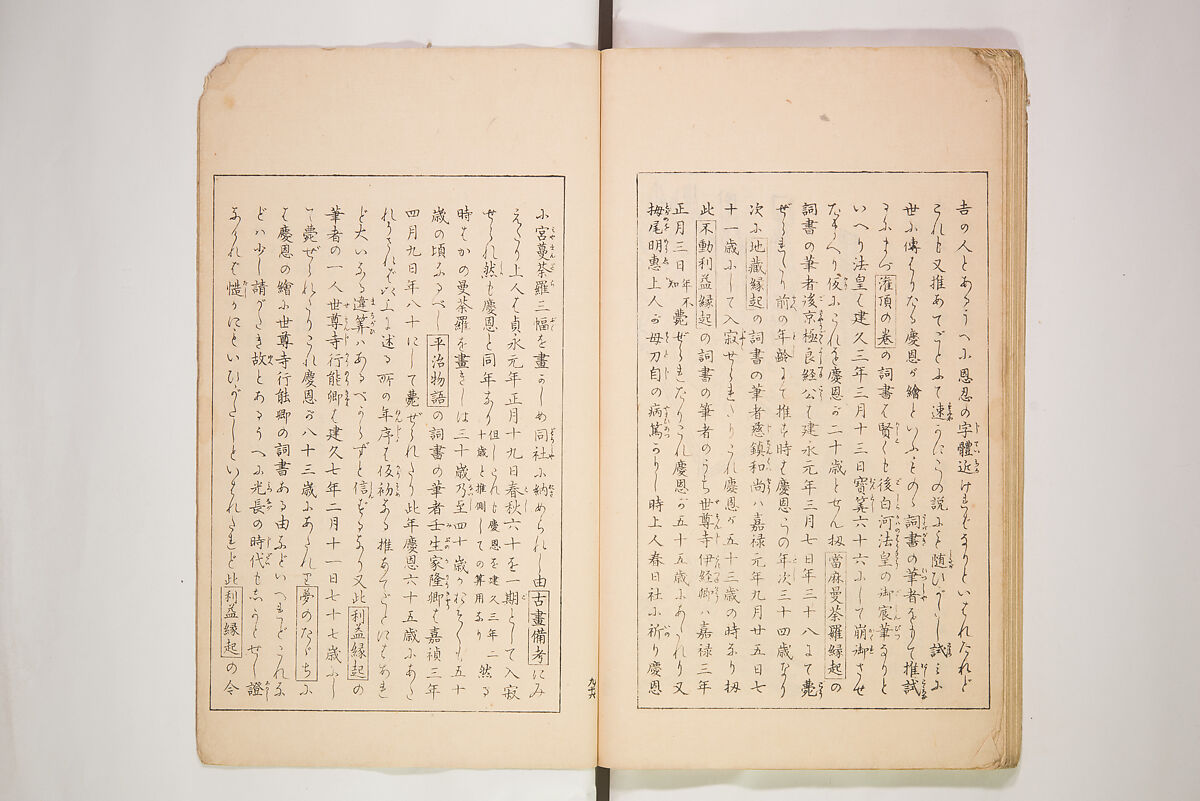 吉の人とあるうへに恩忍の字體近けきなりといはれたれど
これも又推あてごとにて速かにこの説にも随ひがたし試みに
世に傳はりたる慶恩が繪といふものゝ詞書の筆者をもて推試
るにまづ灌頂の巻の詞書は賢くも後白河法皇の御宸筆なりと
いへり法皇は建久三年三月十三日寶算六十六にして崩御させ
たまへり仮にこれを慶恩が二十歳とせん扨當麻曼荼羅縁起の
詞書の筆者後京極良経公は建永元年三月七日年三十八にて薨
ぜられしより前の年齢にて推す時は慶恩この年次三十四歳なり
次に地藏縁起の詞書の筆者慈鎮和尚ハ嘉禄元年九月廿五日七
十一歳にして入寂せられしなりこれ慶恩が五十三歳の時なり扨
此不動利益縁起の詞書の筆者のうち世尊寺伊経卿ハ嘉禄三年
正月三日年不知薨ぜられたりこれ慶恩が五十五歳にあたれり又
栂尾明惠上人が母刀自の病篤かりし時上人春日社に祈り慶恩
に宮蔓荼羅三幅を畫かしめ同社に納められし由古畫備考にみ
えたり上人は貞永元年正月十九日春秋六十を一期として入寂
せられ然も慶恩と同年なり但しこれも慶恩を建久三年二十歳と推測しての算用なり然る
時はかの曼荼羅を畫きしは三十歳乃至四十歳かおそくも五十
歳の頃なるべし平治物語の詞書の筆者壬生家隆卿は嘉禎三年
四月九日年八十にして薨ぜられたり此年慶恩六十五歳にあた
れりされど以上に述る所の年序は仮初なる推あてごとにはあれ
ど大いなる違算ハあるべからずと信ずるなり又此利益縁起の
筆者の一人世尊寺行能卿は建久七年二月十一日七十七歳にし
て薨ぜられたりこれ慶恩が八十三歳にあたれは夢のたゞちに
は慶恩の繪に世尊寺行能卿の詞書ある由などいへれどこれな
どハ少し請がたき故とあるうへに光長の時代も志かとせし證
なければ慥かにといひがたしといはれたれど此利益縁起の今
九十六